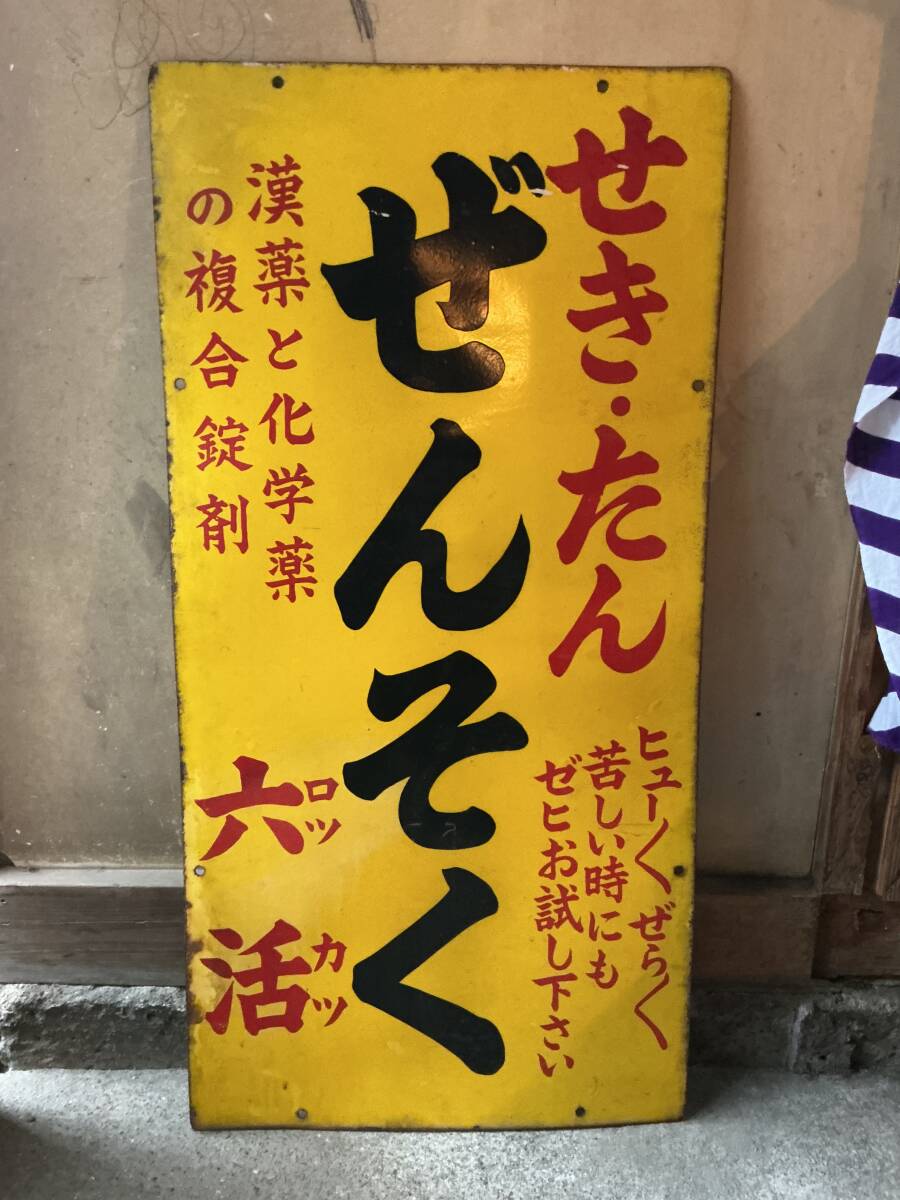 せき・たん
ヒュー〱ぜら〱
苦しい時にも
ゼヒお試し下さい
ぜんそく
漢薬と化学薬
の複合錠剤
六活
ロツカツ